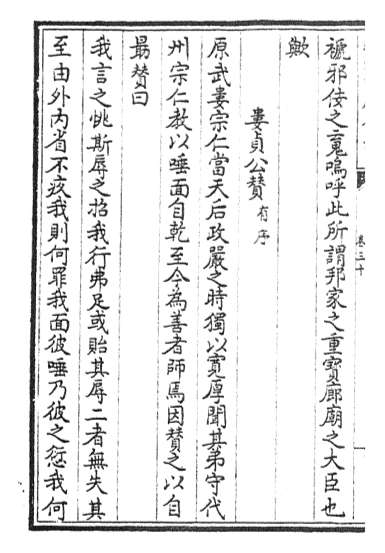 褫邪佞之䰟嗚呼此所謂邦家之重寶廊廟之大臣也
歟
婁貞公賛有序
原武婁宗仁當天后政嚴之時獨以寛厚聞其弟守代
州宗仁教以唾面自乾至今為善者師焉因賛之以自
朂賛曰
我言之恌斯辱之招我行弗足或貽其辱二者無失其
至由外内省不疚我則何罪我面彼唾乃彼之愆我何
卷三十